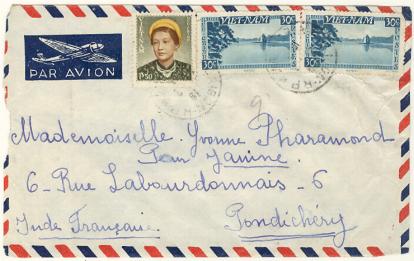 PAR AVION
1$50
VIET-NAM
30c
30c
VIET-NAM
30c
30c
9
Mademoiselle Yvonne Pharamond
Pour Janine
6 - Rue Labourdonnais - 6
Inde Française
Pondichéry